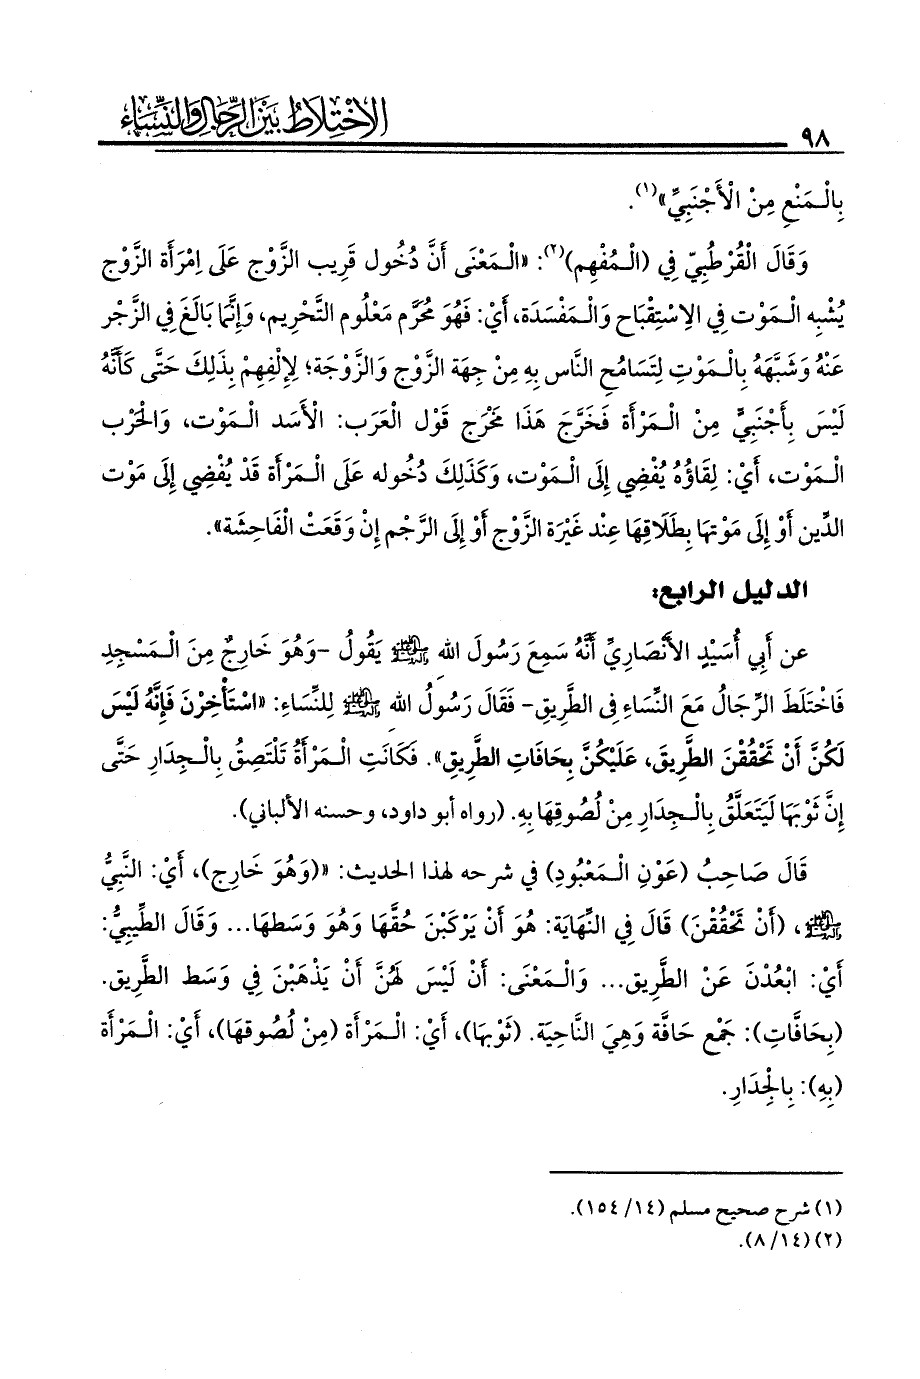 ٩٨
الاختلاط بين الرجال والنساء
بِالْـمَنْعِ مِنْ الْأَجْنَبِيِّ»(١).
وَقَالَ الْقُرْطُبِيّ فِي (الْـمُفْهِم)(٢): «الْـمَعْنَى أَنَّ دُخُول قَرِيب الزَّوْج عَلَى اِمْرَأَة الزَّوْج
يُشْبِه الْـمَوْت فِي الِاسْتِقْبَاح وَالْـمَفْسَدَة، أَيْ: فَهُوَ مُحَرَّم مَعْلُوم التَّحْرِيم، وَإِنَّمَا بَالَغَ فِي الزَّجْر
عَنْهُ وَشَبَّهَهُ بِالْـمَوْتِ لِتَسَامُحِ النَّاس بِهِ مِنْ جِهَة الزَّوْج وَالزَّوْجَة؛ لِإِلْفِهِمْ بِذَلِكَ حَتَّى كَأَنَّهُ
لَيْسَ بِأَجْنَبِيٍّ مِنْ الْـمَرْأَة فَخَرَّجَ هَذَا مَخْرَج قَوْل الْعَرَب: الْأَسَد الْـمَوْت، وَالْحَرْب
الْـمَوْت، أَيْ: لِقَاؤُهُ يُفْضِي إِلَى الْـمَوْت، وَكَذَلِكَ دُخُوله عَلَى الْـمَرْأَة قَدْ يُفْضِي إِلَى مَوْت
الدِّين أَوْ إِلَى مَوْتهَا بِطَلَاقِهَا عِنْد غَيْرَة الزَّوْج أَوْ إِلَى الرَّجْم إِنْ وَقَعَتْ الْفَاحِشَة».
الدليل الرابع:
عن أَبِي أُسَيْدٍ الأَنْصَارِيِّ أَنَّهُ سَمِعَ رَسُولَ الله ﷺ يَقُولُ -وَهُوَ خَارِجٌ مِنَ الْـمَسْجِدِ
فَاخْتَلَطَ الرِّجَالُ مَعَ النِّسَاءِ فِى الطَّرِيقِ- فَقَالَ رَسُولُ الله ﷺ لِلنِّسَاءِ: «اسْتَأْخِرْنَ فَإِنَّهُ لَيْسَ
لَكُنَّ أَنْ تَحْقُقْنَ الطَّرِيقَ، عَلَيْكُنَّ بِحَافَاتِ الطَّرِيقِ». فَكَانَتِ الْـمَرْأَةُ تَلْتَصِقُ بِالْـجِدَارِ حَتَّى
إِنَّ ثَوْبَهَا لَيَتَعَلَّقُ بِالْـجِدَارِ مِنْ لُصُوقِهَا بِهِ. (رواه أبو داود، وحسنه الألباني).
قَالَ صَاحِبُ (عَوْنِ الْـمَعْبُودِ) في شرحه لهذا الحديث: «(وَهُوَ خَارِج)، أَيْ: النَّبِيُّ
ﷺ، (أَنْ تَحْقُقْنَ) قَالَ فِي النِّهَايَة: هُوَ أَنْ يَرْكَبْنَ حُقَّهَا وَهُوَ وَسَطهَا... وَقَالَ الطِّيبِيُّ:
أَيْ: ابْعُدْنَ عَنْ الطَّرِيق... وَالْـمَعْنَى: أَنْ لَيْسَ لَهُنَّ أَنْ يَذْهَبْنَ فِي وَسَط الطَّرِيق.
(بِحَافَّاتِ): جَمْع حَافَّة وَهِيَ النَّاحِيَة. (ثَوْبهَا)، أَيْ: الْـمَرْأَة (مِنْ لُصُوقهَا)، أَيْ: الْـمَرْأَة
(بِهِ): بِالْجِدَارِ.
(١) شرح صحيح مسلم (١٤/ ١٥٤).
(٢) (١٤/ ٨).